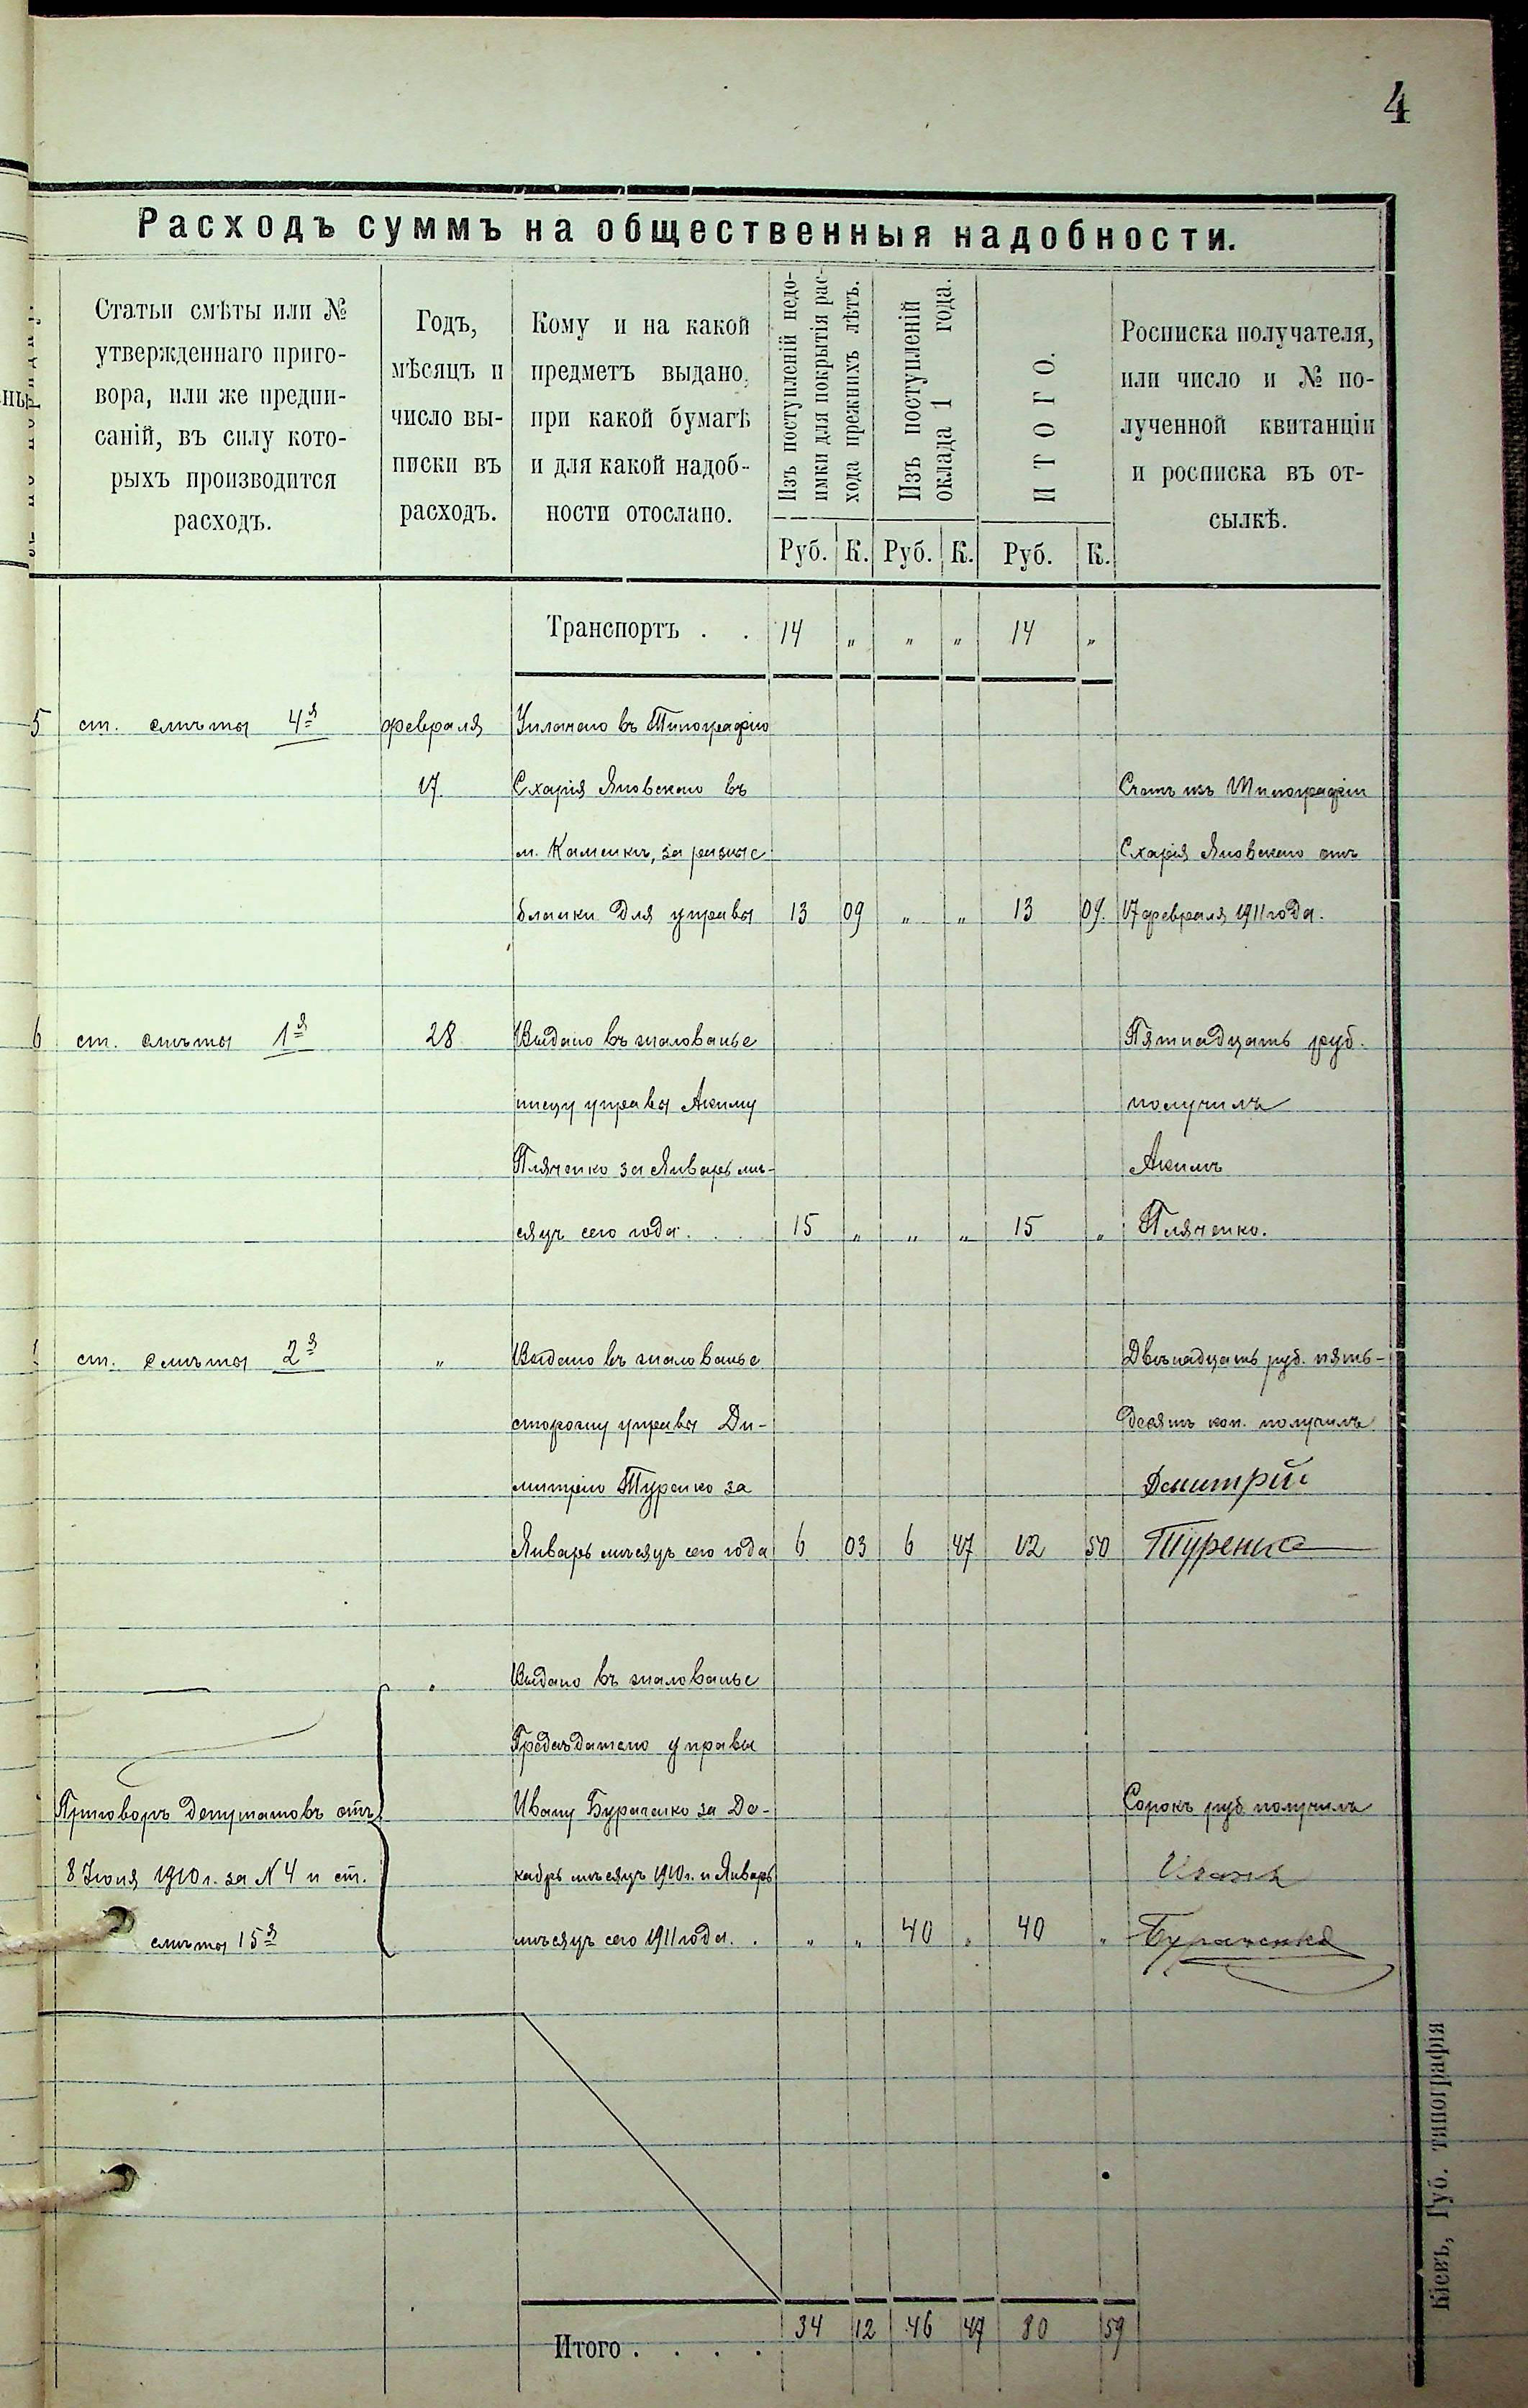 4
Расходъ суммъ на общественныя надобности.
Статьи смѣты или №
утвержденнаго приго-
вора, или же предпи-
саній, въ силу кото-
рыхъ производится
расходъ.
Годъ,
мѣсяцъ и
число вы-
писки въ
расходъ.
Кому и на какой
предметъ выдано,
при какой бумагѣ
и для какой надоб-
ности отослано.
Изъ поступленій недо-
имки для покрытія рас-
хода прежнихъ лѣтъ.
Изъ поступленій
оклада 1 года.
ИТОГО.
Росписка получателя,
или число и № по-
лученной квитанціи
и росписка въ от-
сылкѣ.
Руб. К. Руб. К. Руб. К.
Транспортъ . . 14 „ „ „ 14 „
5 ст. смѣты 4я февраля Уплачено въ Типографію
17. Схарія Яновскаго въ Счетъ изъ Типографіи
м. Каменкѣ, за разные Схарія Яновскаго отъ
бланки для управы 13 09 „ „ 13 09. 17 февраля 1911 года.
6 ст. смѣты 1я 28 Выдано въ жалованье Пятнадцать руб.
писцу управы Акиму получилъ
Пляченко за Январь мѣ- Акимъ
сяцъ сего года . . . 15 „ „ „ 15 „ Пляченко.
ст. смѣты 2я „ Выдано въ жалованье Двѣнадцать руб. пять-
сторожу управы Ди- десятъ коп. получилъ
митрію Туренко за Дмитрій
Январь мѣсяцъ сего года 6 03 6 47 12 50 Туренко
— „ Выдано въ жалованье
Предсѣдателю управы
Приговоръ депутатовъ отъ Ивану Бураченко за Де- Сорокъ руб. получилъ
8 Іюня 1910 г. за N 4 и ст. кабрь мѣсяцъ 1910 г. и Январь Иванъ
смѣты 15я мѣсяцъ сего 1911 года. . „ „ 40 „ 40 „ Бураченко
Итого . . . . 34 12 46 47 80 59
Кіевъ, Губ. типографія